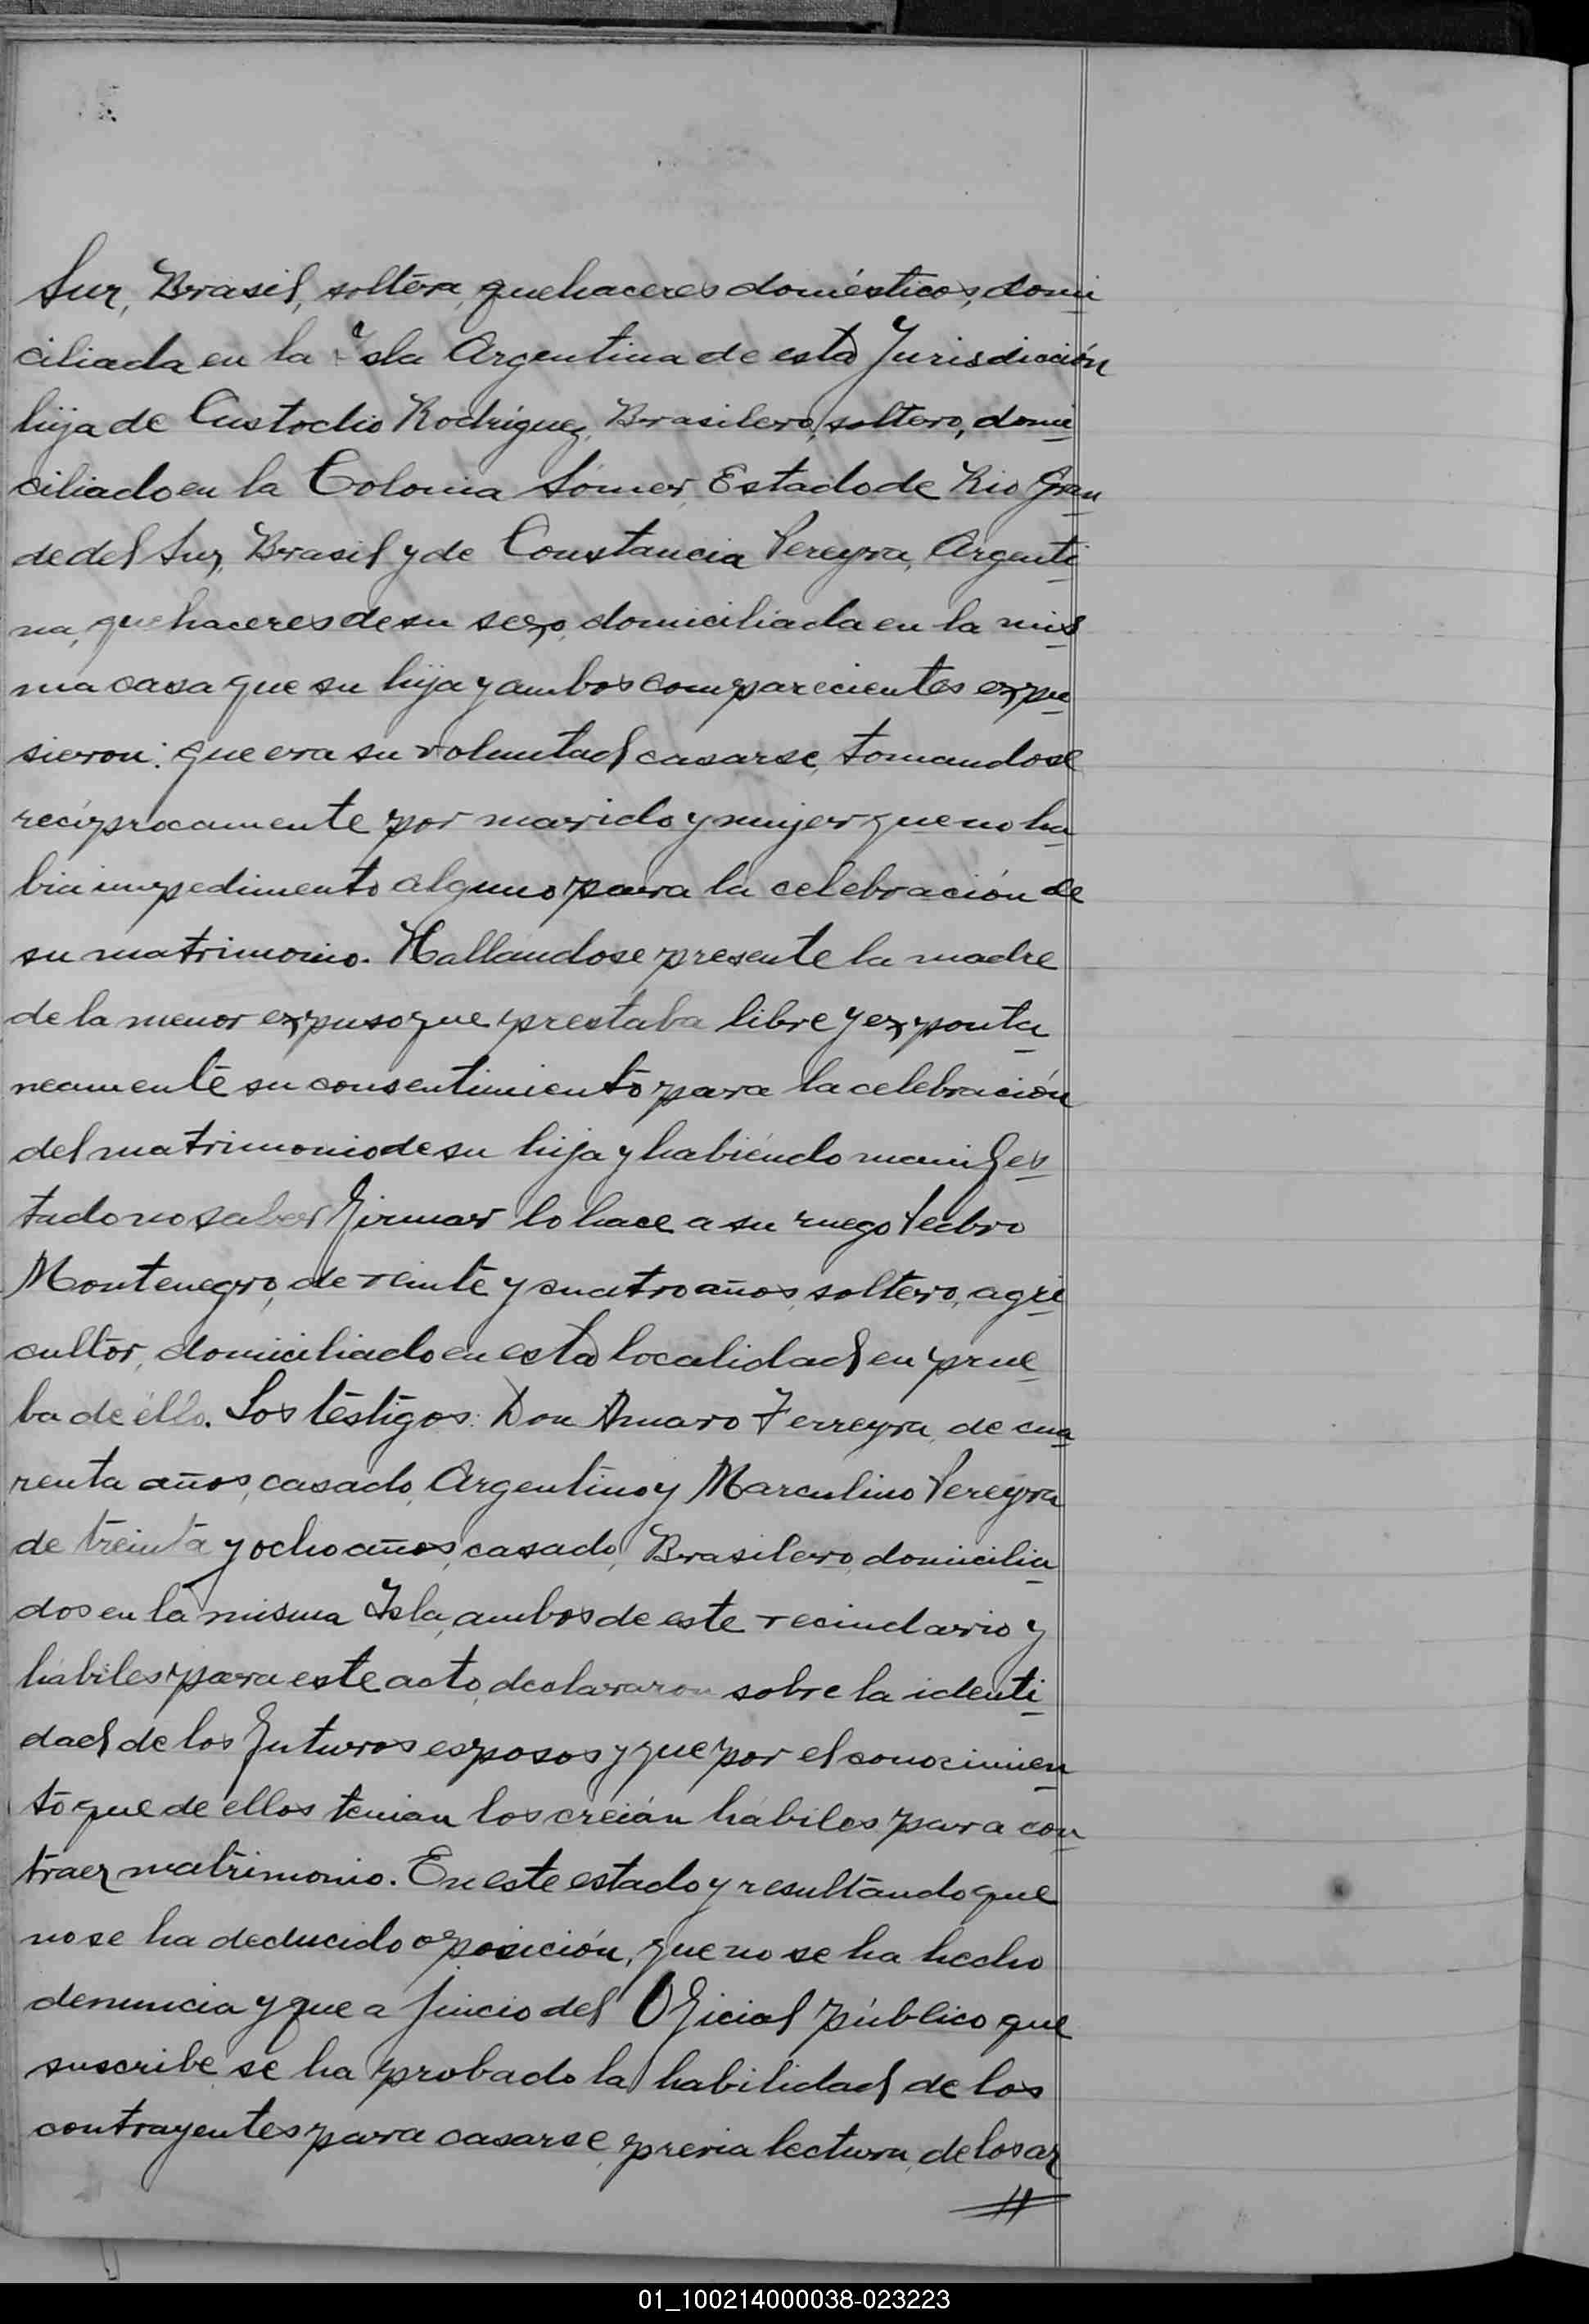 Sur, Brasil, soltera, quehaceres domésticos, domi
ciliada en la Isla Argentina de esta Jurisdicción
hija de Custodio Rodriguez, Brasilero, soltero, domi
ciliado en la Colonia Sómer, Estado de Rio Gran
de del Sur, Brasil y de Constancia Pereyra, Argenti
na, quehaceres de su sexo, domiciliada en la mis
ma casa que su hija y ambos comparecientes expu
sieron: que era su voluntad casarse, tomandose
recíprocamente por marido y mujer que no ha
bia impedimento alguno para la celebración de
su matrimonio. Hallandose presente la madre
de la menor expuso que prestaba libre y exponta
neamente su consentimiento para la celebración
del matrimonio de su hija y habiéndo manifes
tado no saber firmar lo hace a su ruego Pedro
Montenegro, de veinte y cuatro años, soltero, agri
cultor, domiciliado en esta localidad en prue
ba de éllo. Los testigos: Don Amaro Ferreyra, de cua
renta años, casado, Argentino y Marculino Pereyra
de treinta y ocho años, casado, Brasilero, domicilia
dos en la misma Isla, ambos de este vecindario y
hábiles para este acto, declararon sobre la identi
dad de los futuros esposos y que por el conocimien
to que de ellos tenian los creián hábiles para con
traer matrimonio. En este estado y resultando que
no se ha deducido oposición, que no se ha hecho
denuncia y que a juicio del Oficial público que
suscribe se ha probado la habilidad de los
contrayentes para casarse, previa lectura, de los ar
01_100214000038-023223